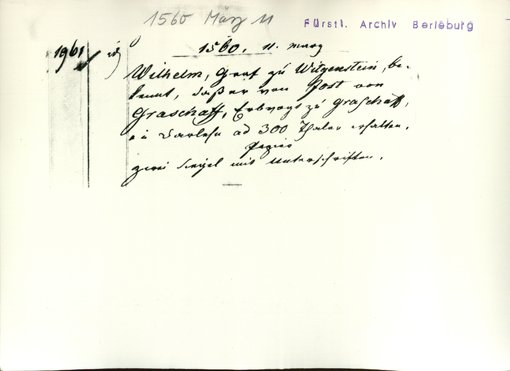 1560 März 11
Fürstl. Archiv Berleburg
1961
1560, 11. März
Wilhelm, Graf zu Witgenstein, be-
kennt, daß er von Jost von
Graschaff, Erbvogt zu Graschaff,
ein Darlehn ad 300 Thaler erhalten.
Papier
zwei Siegel mit Unterschriften.